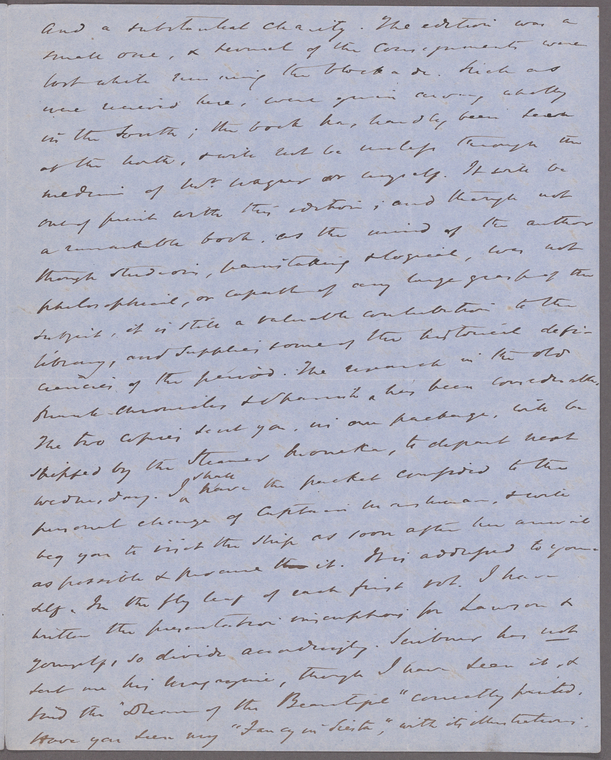 and a substantial charity. The edition was a
small one, & several of the consignments were
lost while running the blockade. Such as
were received here, were given away chiefly
in the South; the book has hardly been seen
at the North, & will not be unless through the
medium of Mr. Wagner or myself. It will be
out of print with this edition; and though not
a remarkable book, as the mind of the author
though studious, painstaking & logical, was not
philosophical, or capable of any large grasp of the
subject, it is still a valuable contribution to the
library, and supplies some of the historical defi-
ciencies of the period. The research in the old
French Chronicles & Spanish has been considerable.
The two copies sent you, in one package, will be
shipped by the Steamer Moneka, to depart next
wednesday. I shall have the packet confided to the
personal charge of Captain Marshman, & will
beg you to visit the ship as soon after her arrival
as possible & procure it. It is addressed to your-
self. In the fly leaf of each first vol. I have
written the presentation inscriptions for Lawson &
yourself, so divide accordingly. Scribner has not
sent me his magazine, though I have seen it, &
find the "Dream of the Beautiful" correctly printed.
Have you seen my "Fancy in Siesta", with its illustrations.